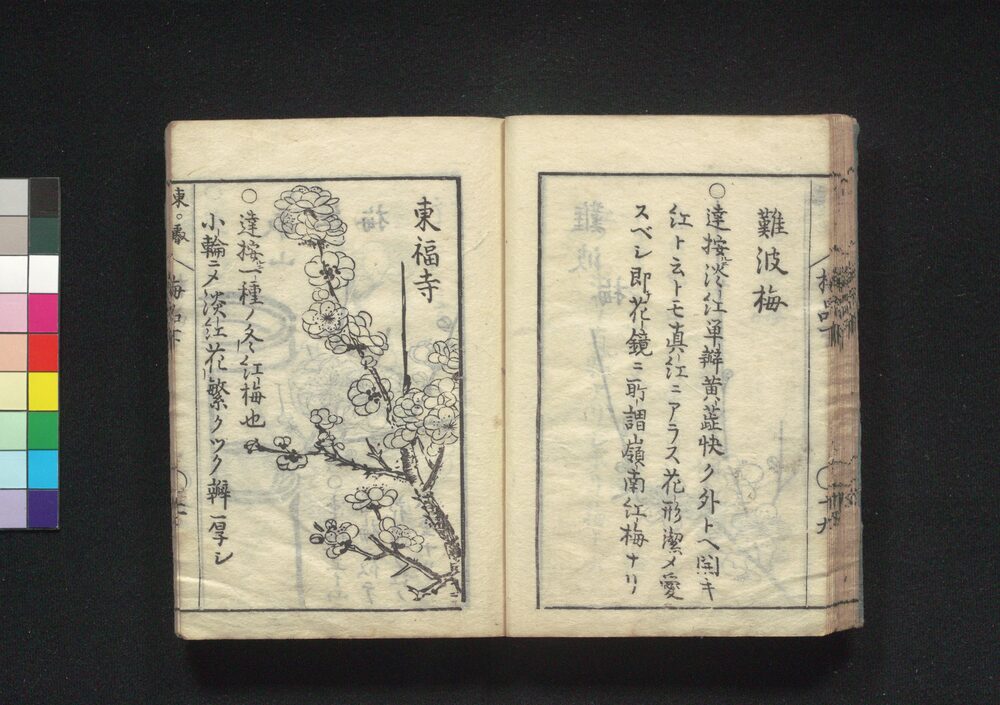 難波梅
○達按淡紅單瓣黄蕋快ク外トヘ開キ
紅ト云トモ真紅ニアラス花形潔メ愛
スベシ即花鏡ニ所謂嶺南紅梅ナリ
梅品
十九
東福寺
○達按一種ノ冬紅梅也
小輪ニメ淡紅花繁クツク瓣厚シ